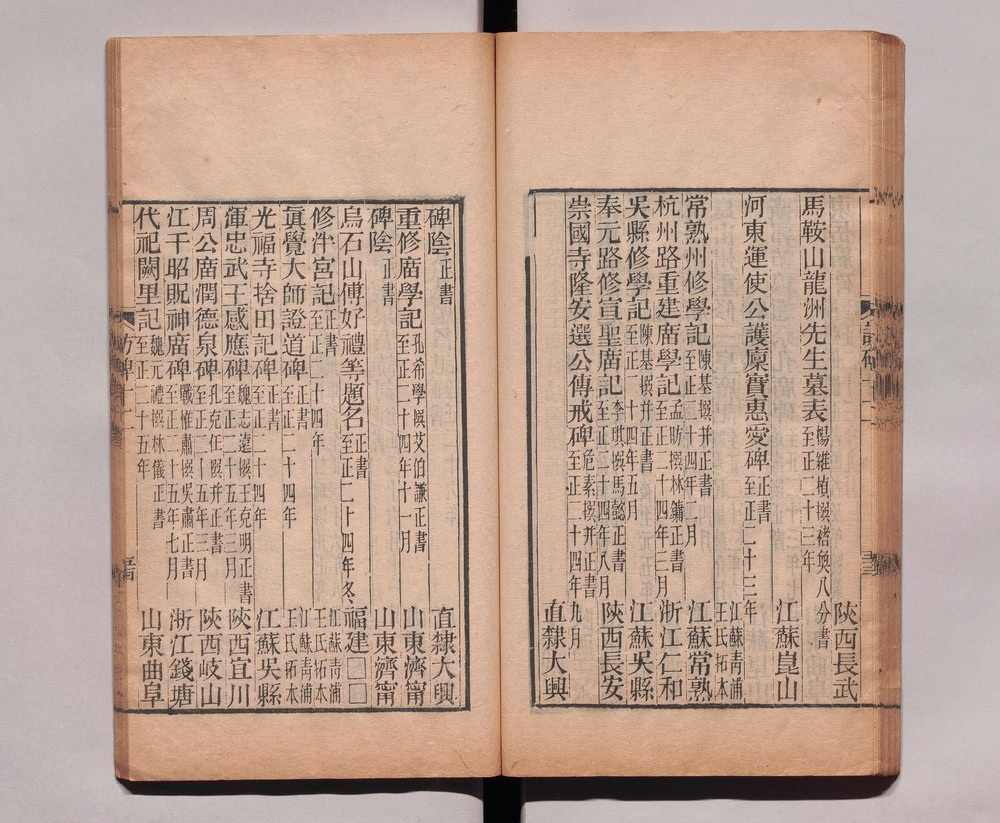 陝西長武
馬鞍山龍洲先生墓表 楊維楨撰褚奐八分書
至正二十三年
江蘇崑山
河東運使公護廩實惠愛碑 正書
至正二十三年
江蘇青浦
王氏拓本
常熟州修學記 陳基撰并正書
至正二十四年二月 江蘇常熟
杭州路重建廟學記 孟昉撰林鏞正書
至正二十四年三月 浙江仁和
吳縣修學記 陳基撰并正書
至正二十四年五月 江蘇吳縣
奉元路修宣聖廟記 李祺撰馬懿正書
至正二十四年八月 陝西長安
崇國寺隆安選公傳戒碑 危素撰并正書
至正二十四年九月
直隸大興
碑陰 正書 直隸大興
重修廟學記 孔希學撰艾伯謙正書
至正二十四年十一月 山東濟甯
碑陰 正書 山東濟甯
烏石山傅好禮等題名 正書
至正二十四年冬 福建□□
修泮宮記 正書
至正二十四年 江蘇青浦
王氏拓本
眞覺大師證道碑 正書
至正二十四年 江蘇青浦
王氏拓本
光福寺捨田記碑 正書
至正二十四年 江蘇吳縣
渾忠武王感應碑 魏志遠撰王克明正書
至正二十五年三月 陝西宜川
周公廟潤德泉碑 孔克任撰并正書
至正二十五年三月 陝西岐山
江干昭貺神廟碑 戰惟肅撰吳肅正書
至正二十五年七月 浙江錢塘
代祀闕里記 魏元禮撰林儀正書
至正二十五年 山東曲阜